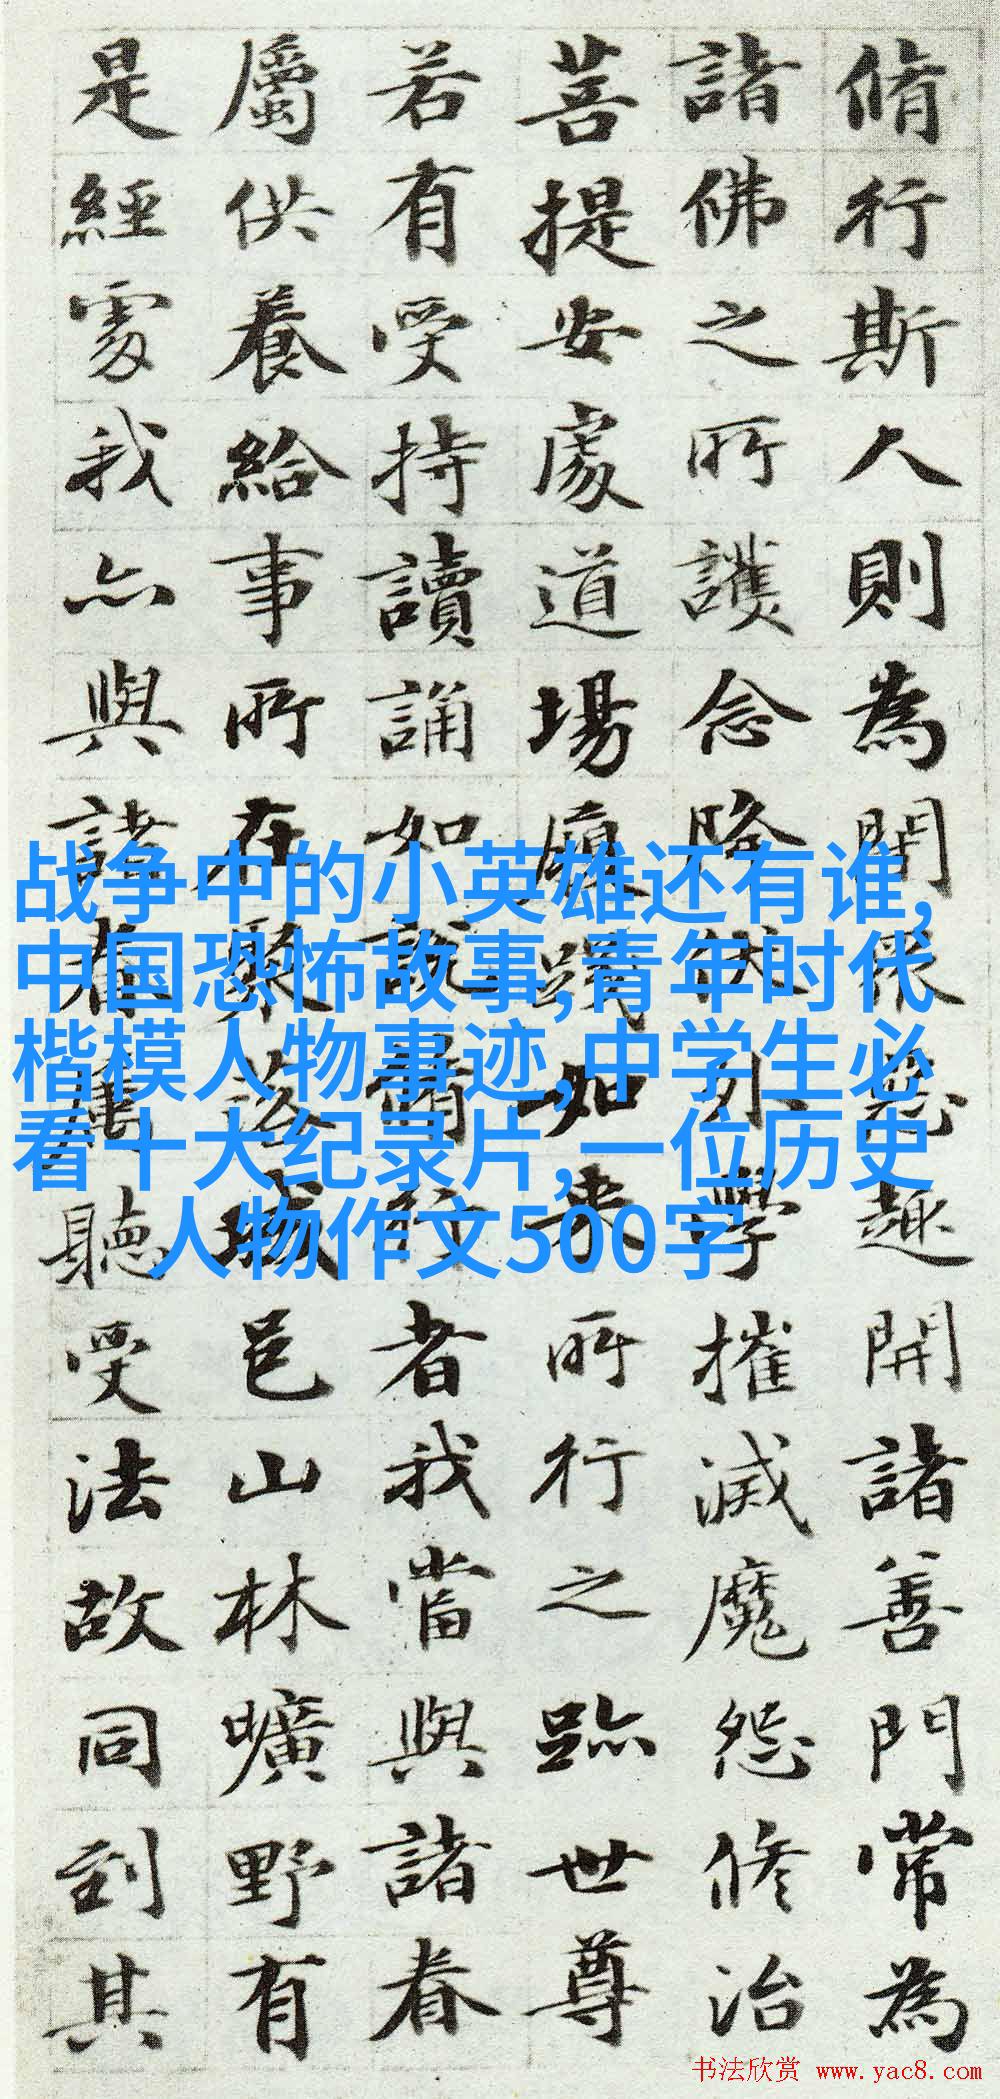 脩行斯人則為閇眾惡趣開諸善門常為
諸佛之所護念降伏外學摧滅魔怨修治
菩提安處道場履踐如來所行之跡世尊
若有受持讀誦如說脩行者我當與諸眷
屬供養給事所在聚落城邑山林曠野有
是經處我亦與諸眷屬聽受法故同到其
战争中的小英雄还有谁,
中国恐怖故事,青年时代
楷模人物事迹,中学生必
看十大纪录片,一位历史
人物作文500字
书法欣赏 www.yac8.com